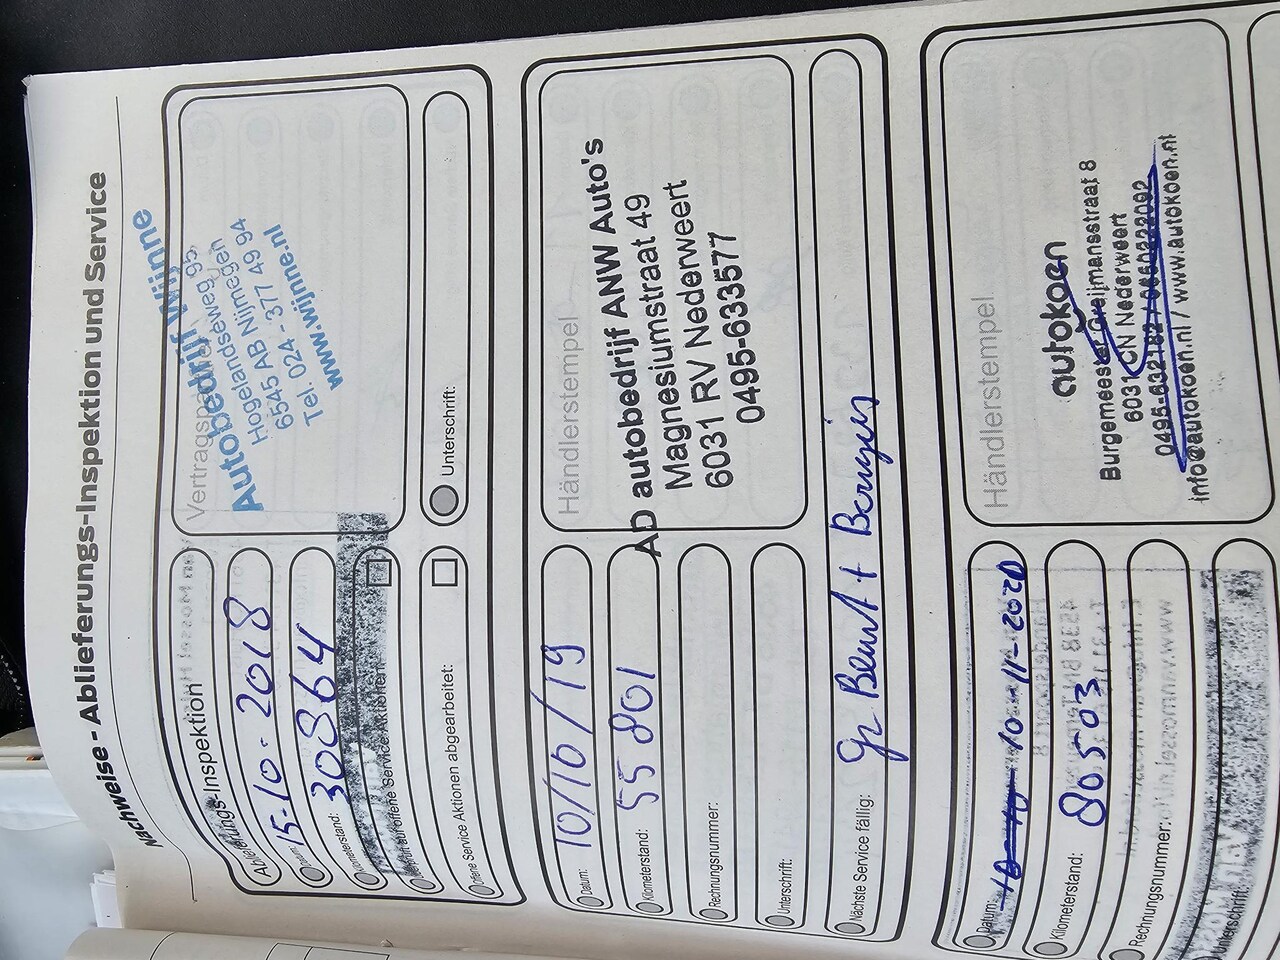 Nachweise - Ablieferungs-Inspektion und Service
Ablieferungs-Inspektion
15-10-2018
Kilometerstand:
30864
offene Service Aktionen
Offene Service Aktionen abgearbeitet:
Unterschrift:
Autobedrijf Wijnne
Hogelandseweg 95
6545 AB Nijmegen
Tel. 024 - 377 49 94
www.wijnne.nl
Datum: 10/10/19
Kilometerstand: 55 801
Rechnungsnummer:
Unterschrift:
Nächste Service fällig:
Händlerstempel
AD autobedrijf ANW Auto's
Magnesiumstraat 49
6031 RV Nederweert
0495-633577
Datum: 10-11-2020
Kilometerstand: 80503
Rechnungsnummer:
Unterschrift:
Händlerstempel
autokoen
Burgemeester Greijmansstraat 8
6031 CN Nederweert
0495-632182 /
info@autokoen.nl / www.autokoen.nl